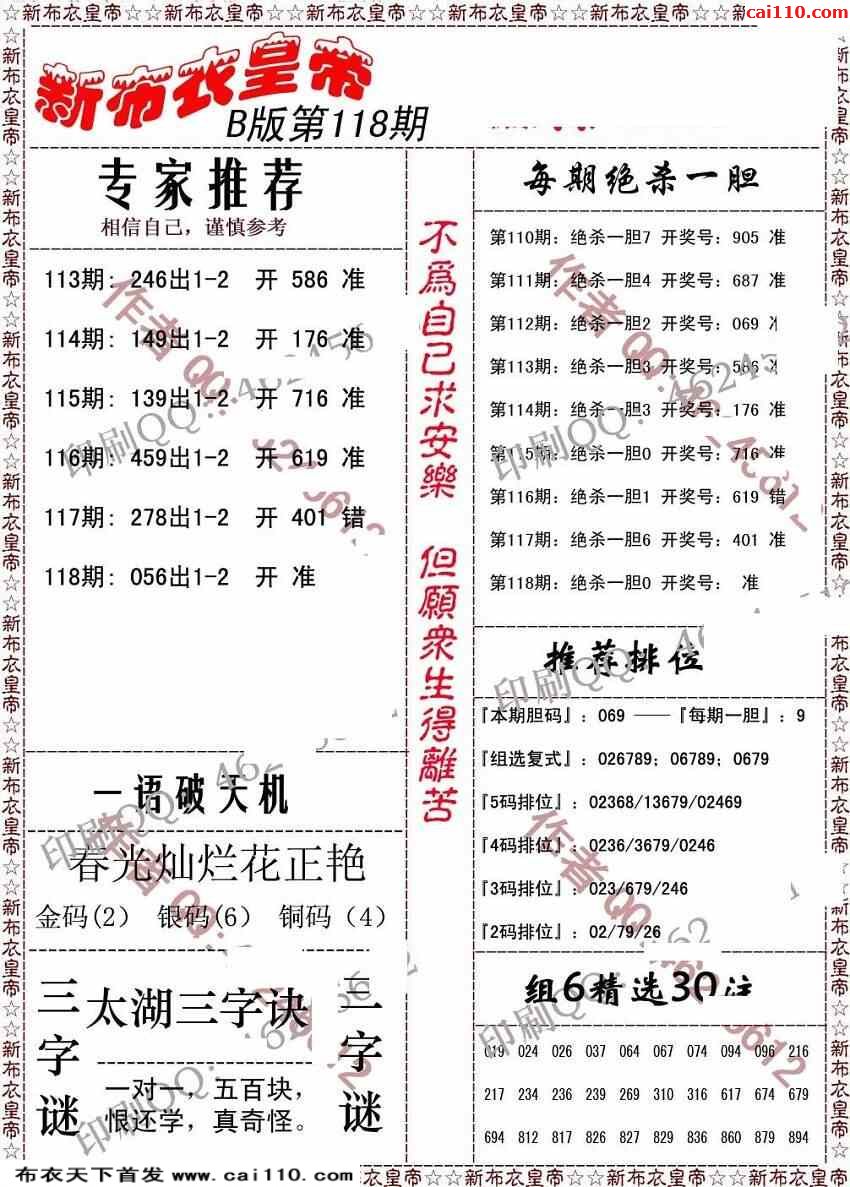 cai110.com
☆☆新布衣皇帝☆☆新布衣皇帝☆☆新布衣皇帝☆☆新布衣皇帝☆☆新布衣皇帝☆☆新布衣皇帝☆☆
新布衣皇帝
B版第118期
专家推荐
相信自己，谨慎参考
113期: 246出1-2 开 586 准
114期: 149出1-2 开 176 准
115期: 139出1-2 开 716 准
116期: 459出1-2 开 619 准
117期: 278出1-2 开 401 错
118期: 056出1-2 开 准
一语破天机
春光灿烂花正艳
金码(2) 银码(6) 铜码（4）
三字谜
太湖三字诀
一对一，五百块，
恨还学，真奇怪。
三字谜
不為自己求安樂
但願衆生得離苦
每期绝杀一胆
第110期: 绝杀一胆7 开奖号: 905 准
第111期: 绝杀一胆4 开奖号: 687 准
第112期: 绝杀一胆2 开奖号: 069 准
第113期: 绝杀一胆3 开奖号: 586 准
第114期: 绝杀一胆3 开奖号: 176 准
第115期: 绝杀一胆0 开奖号: 716 准
第116期: 绝杀一胆1 开奖号: 619 错
第117期: 绝杀一胆6 开奖号: 401 准
第118期: 绝杀一胆0 开奖号: 准
推荐排位
『本期胆码』: 069 ——『每期一胆』: 9
『组选复式』: 026789; 06789; 0679
『5码排位』: 02368/13679/02469
『4码排位』: 0236/3679/0246
『3码排位』: 023/679/246
『2码排位』: 02/79/26
组6精选30注
019 024 026 037 064 067 074 094 096 216
217 234 236 239 269 310 316 617 674 679
694 812 817 826 827 829 836 860 879 894
布衣天下首发 www.cai110.com
衣皇帝☆☆新布衣皇帝☆☆新布衣皇帝☆☆新布衣皇帝☆☆